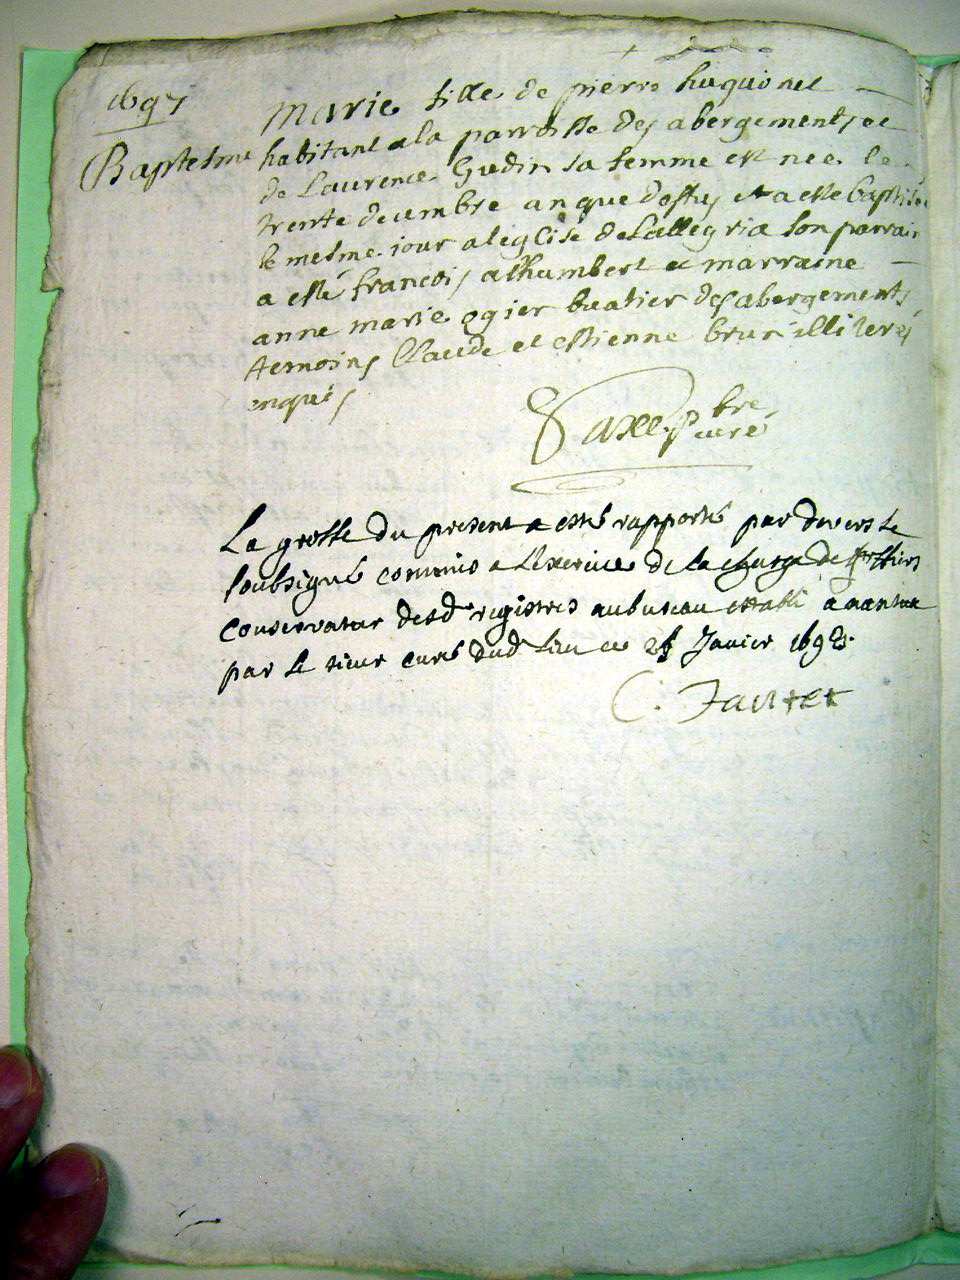 1697
Baptesme
Marie fille de pierre huguonet
habitant a la parroisse des abergements et
de Laurence Gudin sa femme est nee le
trente decembre an que dessus et a esté baptisée
le mesme jour a leglise de Lallegria son parrain
a esté francois alhumbert et marraine
anne marie ogier buatier des abergements
temoins Claude et estienne brun illiteres
enquis
Saxe pbre
curé
La grosse du present a estté rapporté par devers le
soubsigné commis a Lexercice de la charge de greffier
conservateur desd registres au bureau establi a nantua
par le sieur curé dud lieu ce Janvier 1698
C. Jantet